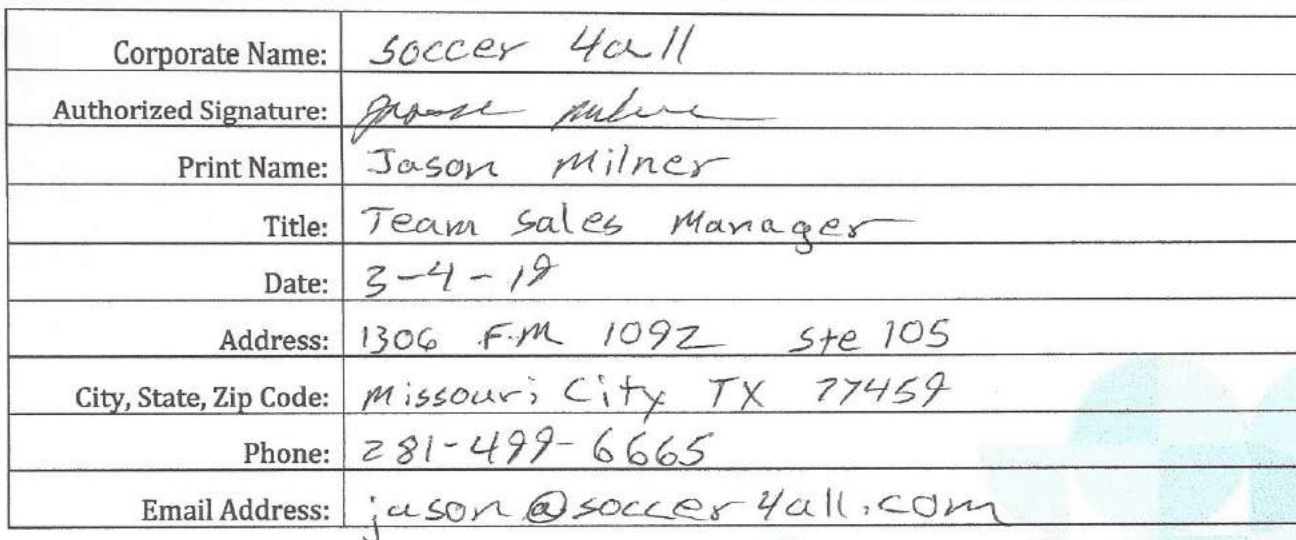 Corporate Name: soccer 4all
Authorized Signature:
Print Name: Jason Milner
Title: Team Sales Manager
Date: 3-4-19
Address: 1306 F.M 1092 Ste 105
City, State, Zip Code: Missouri City TX 77459
Phone: 281-499-6665
Email Address: jason@soccer4all.com